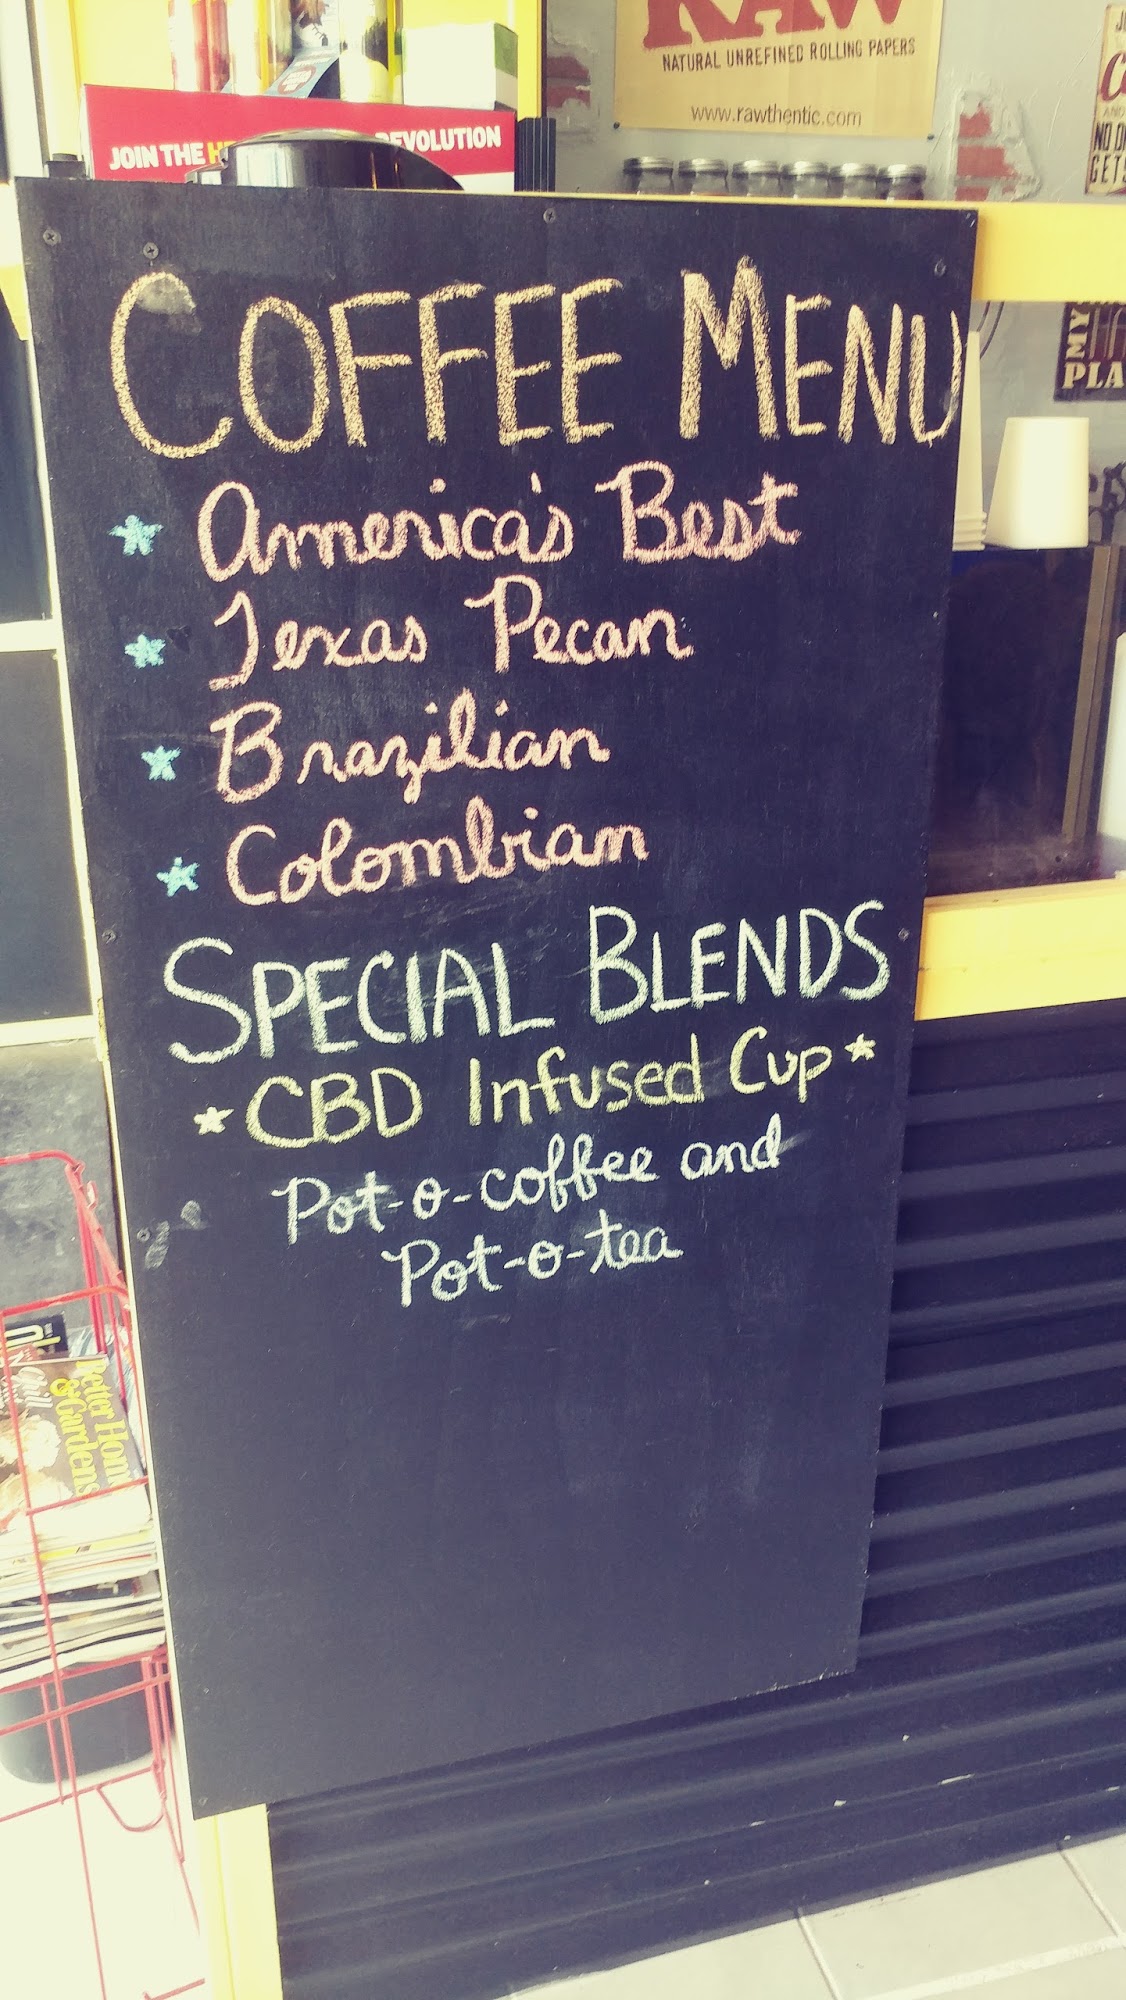 RAW
NATURAL UNREFINED ROLLING PAPERS
www.rawthentic.com
JOIN THE
EVOLUTION
AND
GETS
MY
PLA
COFFEE MENU
America's Best
Texas Pecan
Brazilian
Colombian
SPECIAL BLENDS
CBD Infused Cup
Pot-o-coffee and
Pot-o-tea
Better Hom
& Gardens